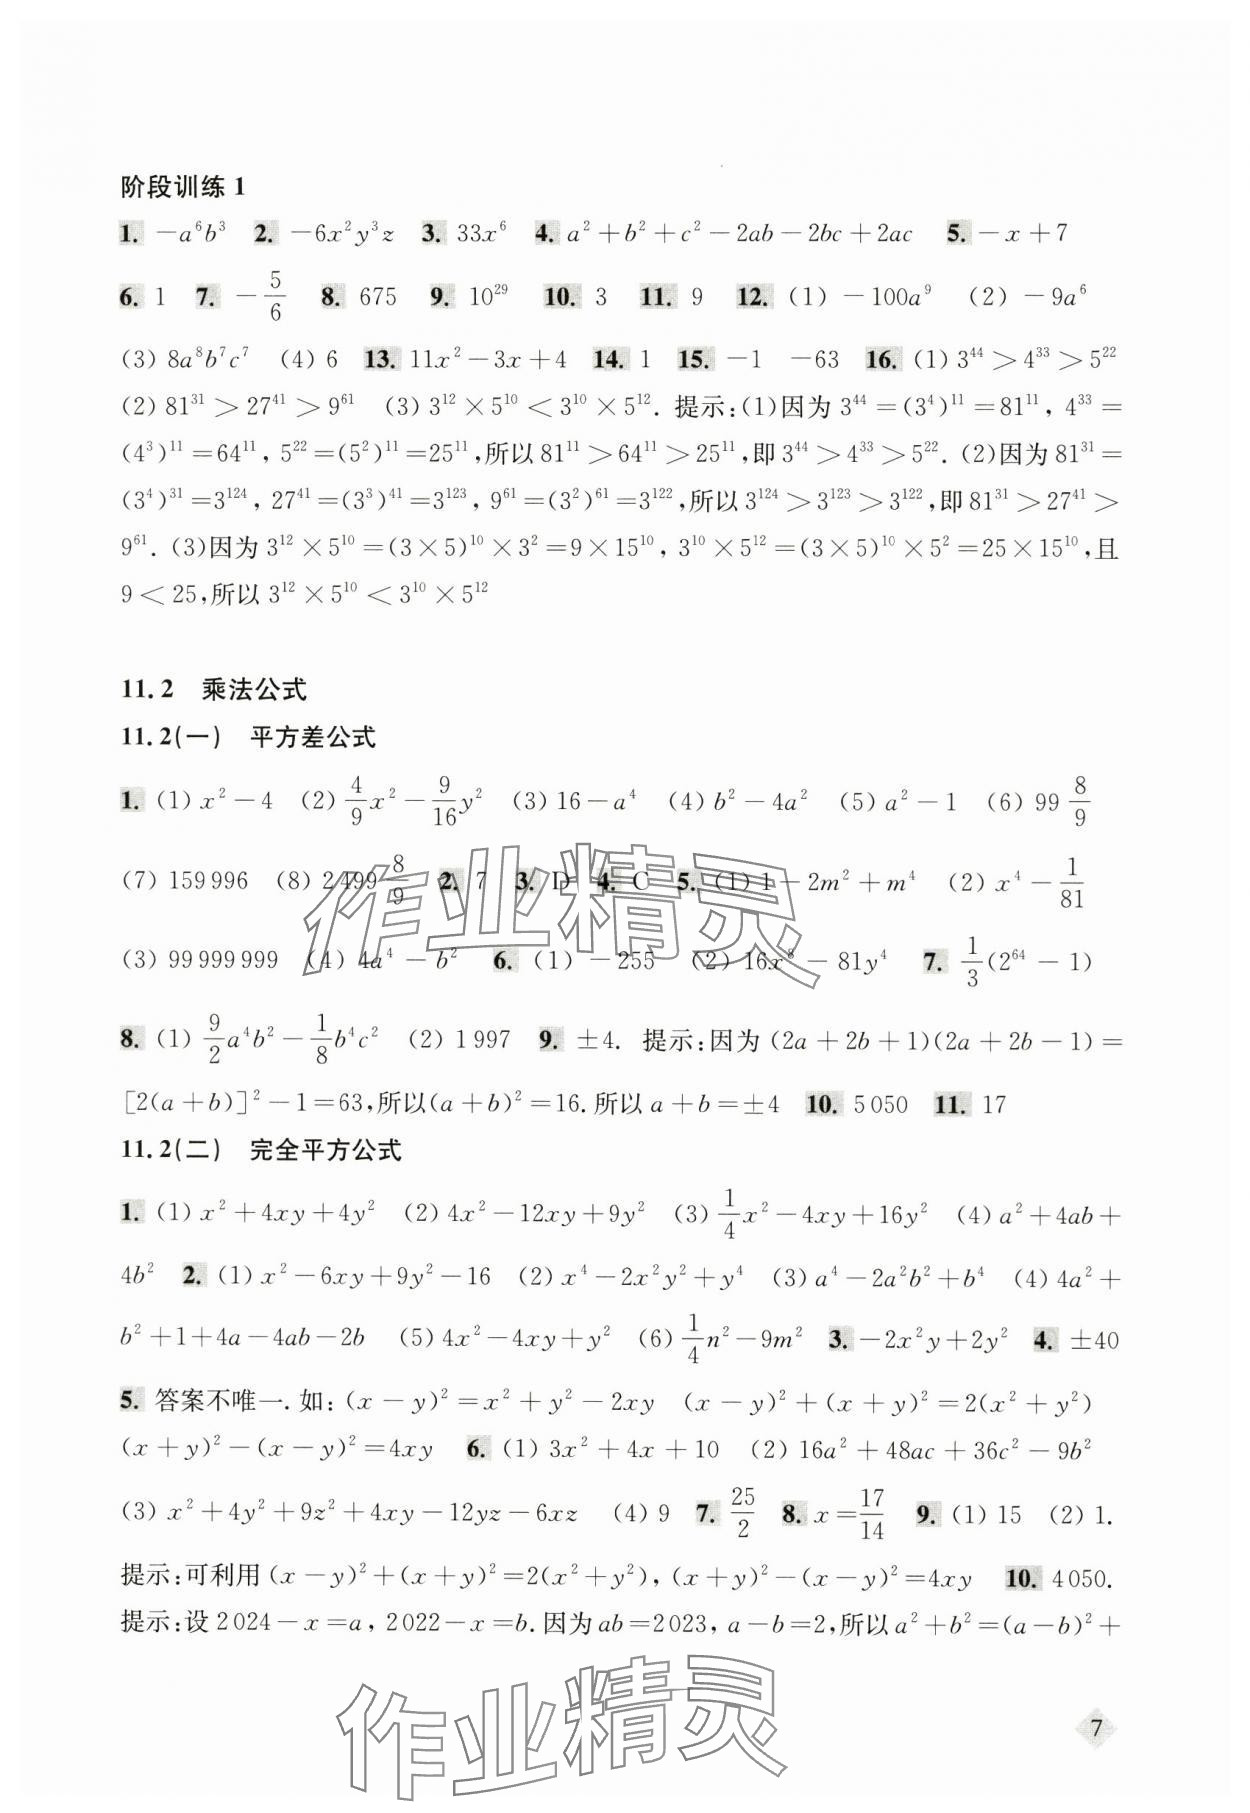 阶段训练 1
1. $-a^6b^3$ 2. $-6x^2y^3z$ 3. $33x^6$ 4. $a^2+b^2+c^2-2ab-2bc+2ac$ 5. $-x+7$
6. 1 7. $-\frac{5}{6}$ 8. 675 9. $10^{29}$ 10. 3 11. 9 12. (1) $-100a^9$ (2) $-9a^6$
(3) $8a^8b^7c^7$ (4) 6 13. $11x^2-3x+4$ 14. 1 15. $-1$ $-63$ 16. (1) $3^{44}>4^{33}>5^{22}$
(2) $81^{31}>27^{41}>9^{61}$ (3) $3^{12}\times5^{10}<3^{10}\times5^{12}$. 提示:(1)因为 $3^{44}=(3^4)^{11}=81^{11}$, $4^{33}=$
$(4^3)^{11}=64^{11}$, $5^{22}=(5^2)^{11}=25^{11}$,所以 $81^{11}>64^{11}>25^{11}$,即 $3^{44}>4^{33}>5^{22}$. (2)因为 $81^{31}=$
$(3^4)^{31}=3^{124}$, $27^{41}=(3^3)^{41}=3^{123}$, $9^{61}=(3^2)^{61}=3^{122}$,所以 $3^{124}>3^{123}>3^{122}$,即 $81^{31}>27^{41}>$
$9^{61}$. (3)因为 $3^{12}\times5^{10}=(3\times5)^{10}\times3^2=9\times15^{10}$, $3^{10}\times5^{12}=(3\times5)^{10}\times5^2=25\times15^{10}$,且
$9<25$,所以 $3^{12}\times5^{10}<3^{10}\times5^{12}$
11.2 乘法公式
11.2(一) 平方差公式
1. (1) $x^2-4$ (2) $\frac{4}{9}x^2-\frac{9}{16}y^2$ (3) $16-a^4$ (4) $b^2-4a^2$ (5) $a^2-1$ (6) $99\frac{8}{9}$
(7) 159 996 (8) $2\,499\frac{8}{9}$ 2. 7 3. D 4. C 5. (1) $1-2m^2+m^4$ (2) $x^4-\frac{1}{81}$
(3) 99 999 999 (4) $4a^4-b^2$ 6. (1) $-255$ (2) $16x^8-81y^4$ 7. $\frac{1}{3}(2^{64}-1)$
8. (1) $\frac{9}{2}a^4b^2-\frac{1}{8}b^4c^2$ (2) 1 997 9. $\pm4$. 提示:因为 $(2a+2b+1)(2a+2b-1)=$
$[2(a+b)]^2-1=63$,所以 $(a+b)^2=16$. 所以 $a+b=\pm4$ 10. 5 050 11. 17
11.2(二) 完全平方公式
1. (1) $x^2+4xy+4y^2$ (2) $4x^2-12xy+9y^2$ (3) $\frac{1}{4}x^2-4xy+16y^2$ (4) $a^2+4ab+$
$4b^2$ 2. (1) $x^2-6xy+9y^2-16$ (2) $x^4-2x^2y^2+y^4$ (3) $a^4-2a^2b^2+b^4$ (4) $4a^2+$
$b^2+1+4a-4ab-2b$ (5) $4x^2-4xy+y^2$ (6) $\frac{1}{4}n^2-9m^2$ 3. $-2x^2y+2y^2$ 4. $\pm40$
5. 答案不唯一. 如: $(x-y)^2=x^2+y^2-2xy$ $(x-y)^2+(x+y)^2=2(x^2+y^2)$
$(x+y)^2-(x-y)^2=4xy$ 6. (1) $3x^2+4x+10$ (2) $16a^2+48ac+36c^2-9b^2$
(3) $x^2+4y^2+9z^2+4xy-12yz-6xz$ (4) 9 7. $\frac{25}{2}$ 8. $x=\frac{17}{14}$ 9. (1) 15 (2) 1.
提示:可利用 $(x-y)^2+(x+y)^2=2(x^2+y^2)$, $(x+y)^2-(x-y)^2=4xy$ 10. 4 050.
提示:设 $2\,024-x=a$, $2\,022-x=b$. 因为 $ab=2\,023$, $a-b=2$,所以 $a^2+b^2=(a-b)^2+$
7
作业精灵
作业精灵